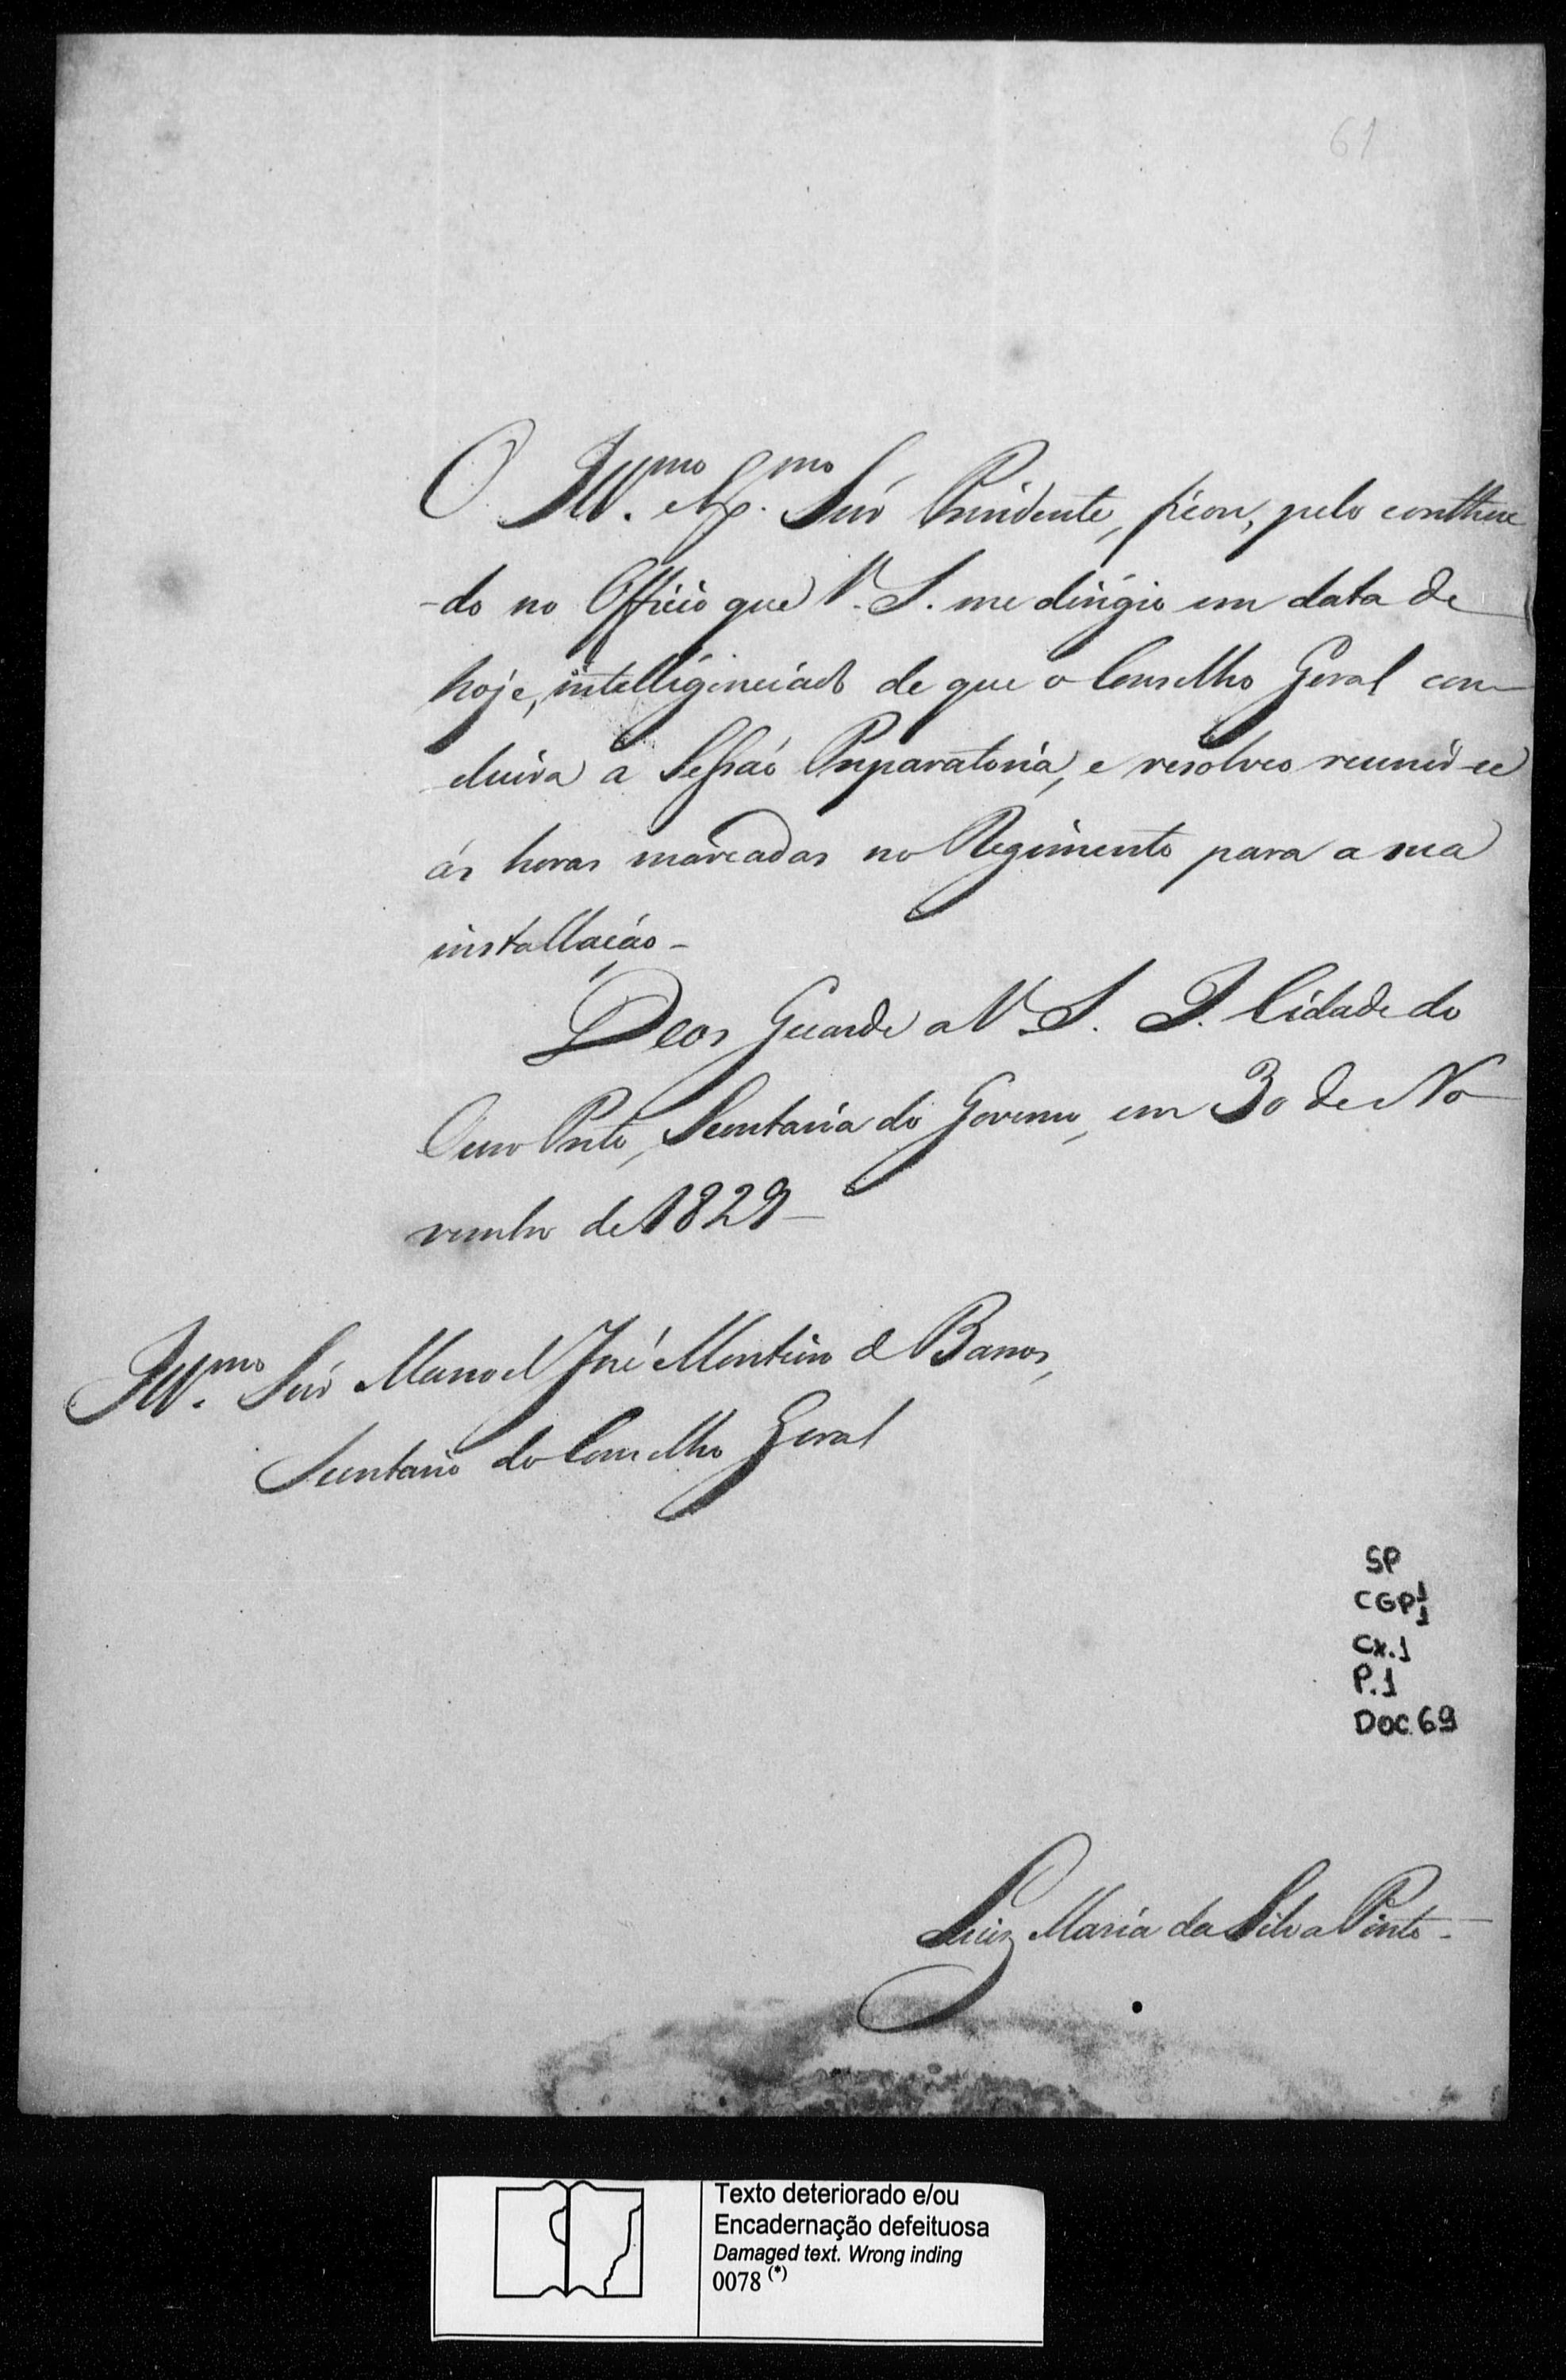 61
O Ill.mo e Ex.mo Snr Presidente, ficou, pelo contheu
-do no Officio que V. S. me dirigio em data de
hoje, intelligenciado de que o Conselho Geral con-
cluira a Sessaõ Preparatoria, e resolveo reunir-se
ás horas marcadas no Regimento para a sua
installação -
Deos Guarde a V. S. I. Cidade do
Ouro Preto, Secretaria do Governo, em 30 de No
vembro de 1829 -
Ill.mo Snr Manoel José Monteiro de Barros,
Secretario do Conselho Geral
SP
CGP 1/1
Cx.1
P.1
DOC.69
Luiz Maria da Silva Pinto -
Texto deteriorado e/ou
Encadernação defeituosa
Damaged text. Wrong inding
0078 (*)